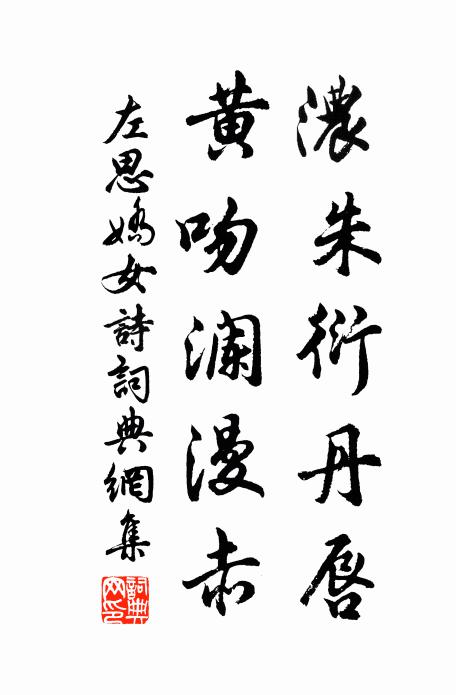 濃朱衍丹唇
黄吻瀾漫赤
左思嬌女詩詞典網集
詞典網印